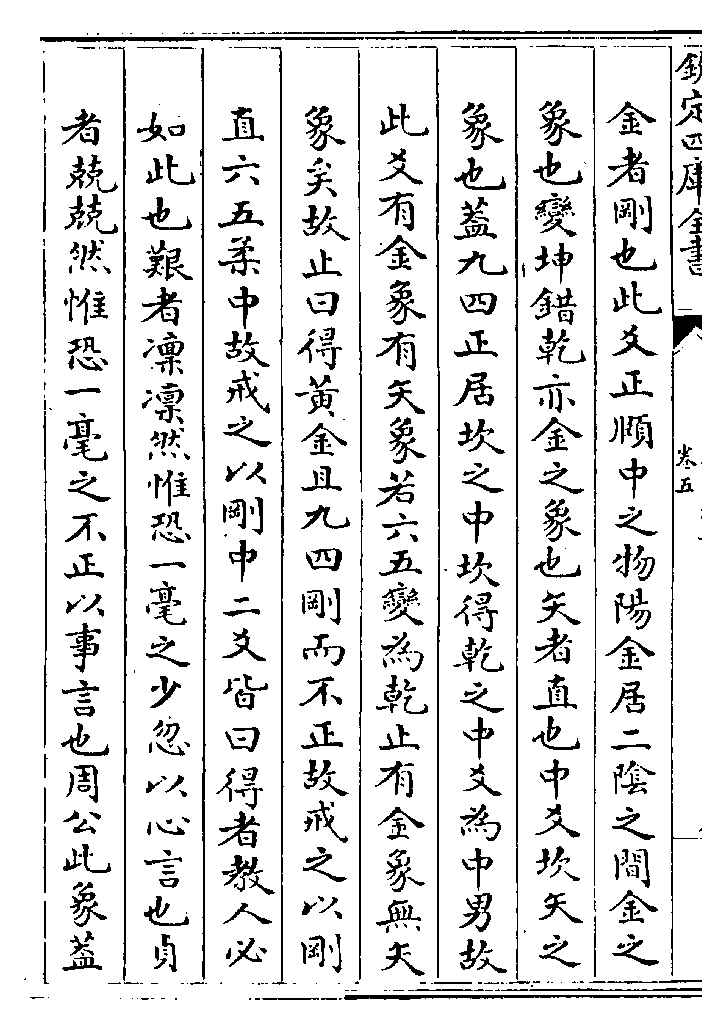 欽定四庫全書
卷五
金者剛也此爻正頤中之物陽金居二陰之間金之
象也變坤錯乾亦金之象也矢者直也中爻坎矢之
象也葢九四正居坎之中坎得乾之中爻為中男故
此爻有金象有矢象若六五變為乾止有金象無矢
象矣故止曰得黃金且九四剛而不正故戒之以剛
直六五柔中故戒之以剛中二爻皆曰得者教人必
如此也艱者凜凜然惟恐一毫之少忽以心言也貞
者兢兢然惟恐一毫之不正以事言也周公此象葢